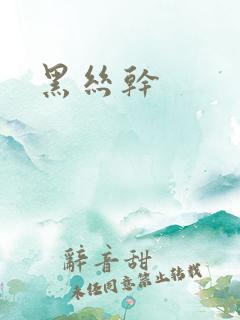 黑絲幹
辭音甜
未经同意禁止转载